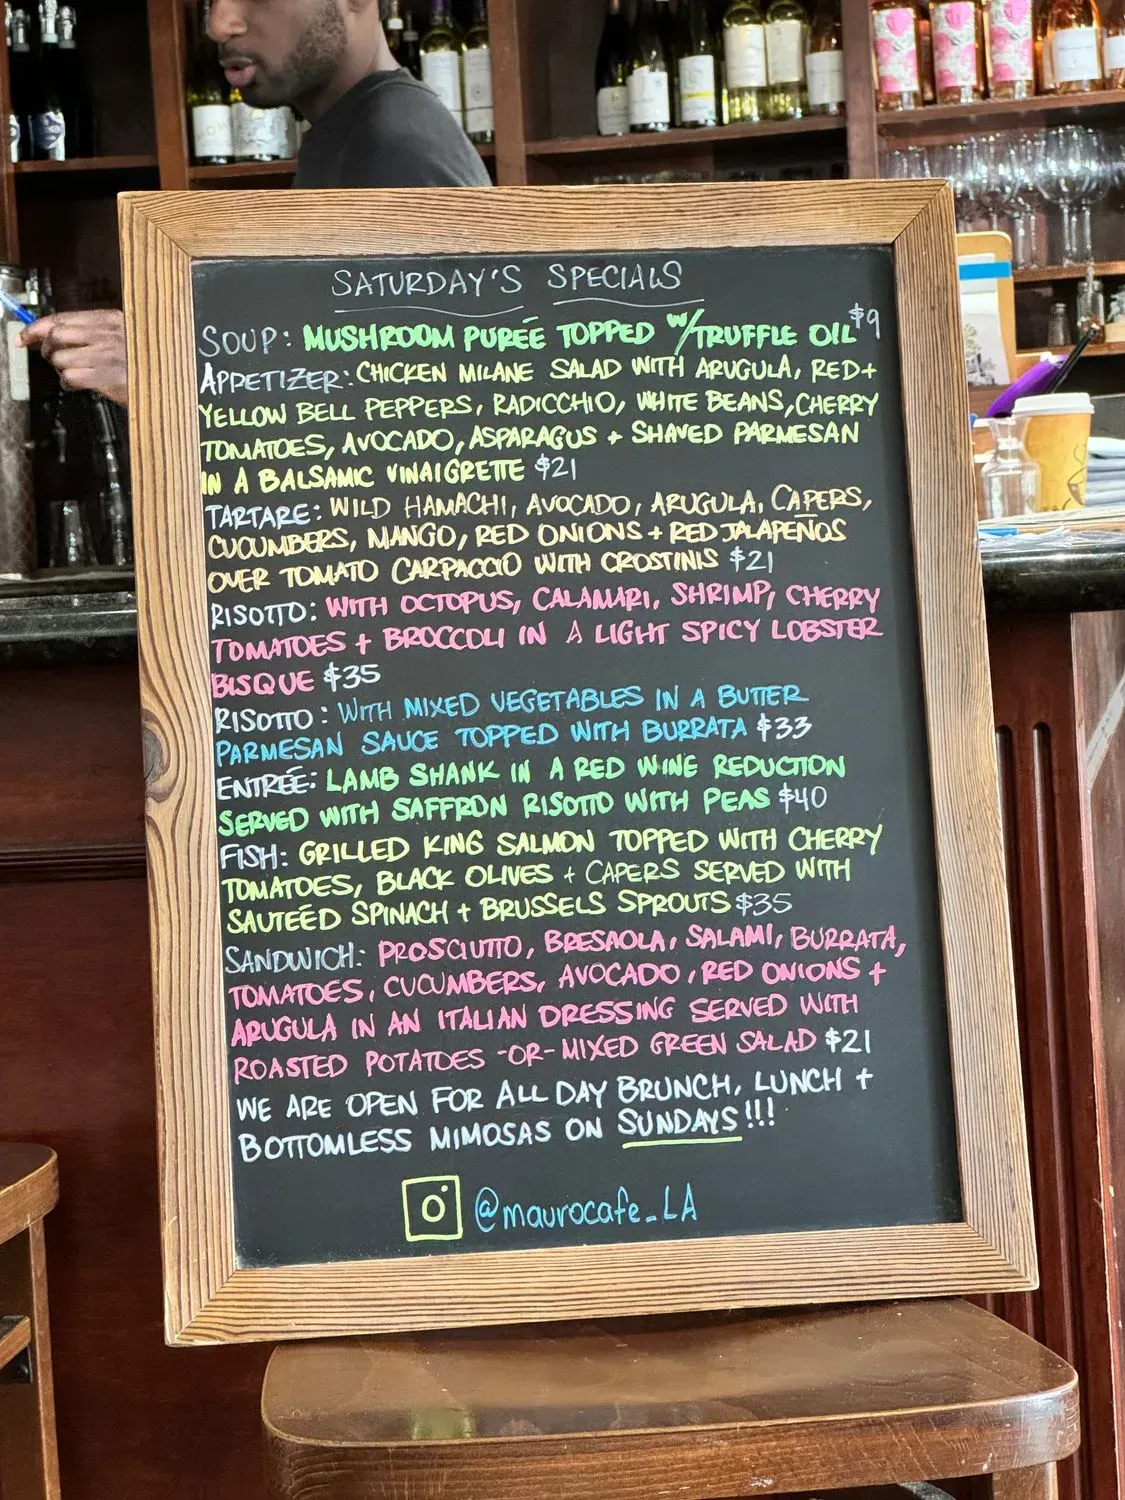 SATURDAY'S SPECIALS
SOUP: MUSHROOM PURÉE TOPPED W/TRUFFLE OIL $9
APPETIZER: CHICKEN MILANE SALAD WITH ARUGULA, RED +
YELLOW BELL PEPPERS, RADICCHIO, WHITE BEANS, CHERRY
TOMATOES, AVOCADO, ASPARAGUS + SHAVED PARMESAN
IN A BALSAMIC VINAIGRETTE $21
TARTARE: WILD HAMACHI, AVOCADO, ARUGULA, CAPERS,
CUCUMBERS, MANGO, RED ONIONS + RED JALAPEÑOS
OVER TOMATO CARPACCIO WITH CROSTINIS $21
RISOTTO: WITH OCTOPUS, CALAMARI, SHRIMP, CHERRY
TOMATOES + BROCCOLI IN A LIGHT SPICY LOBSTER
BISQUE $35
RISOTTO: WITH MIXED VEGETABLES IN A BUTTER
PARMESAN SAUCE TOPPED WITH BURRATA $33
ENTRÉE: LAMB SHANK IN A RED WINE REDUCTION
SERVED WITH SAFFRON RISOTTO WITH PEAS $40
FISH: GRILLED KING SALMON TOPPED WITH CHERRY
TOMATOES, BLACK OLIVES + CAPERS SERVED WITH
SAUTEÉD SPINACH + BRUSSELS SPROUTS $35
SANDWICH: PROSCIUTTO, BRESAOLA, SALAMI, BURRATA,
TOMATOES, CUCUMBERS, AVOCADO, RED ONIONS +
ARUGULA IN AN ITALIAN DRESSING SERVED WITH
ROASTED POTATOES -OR- MIXED GREEN SALAD $21
WE ARE OPEN FOR ALL DAY BRUNCH, LUNCH +
BOTTOMLESS MIMOSAS ON SUNDAYS!!!
@maurocafe_LA